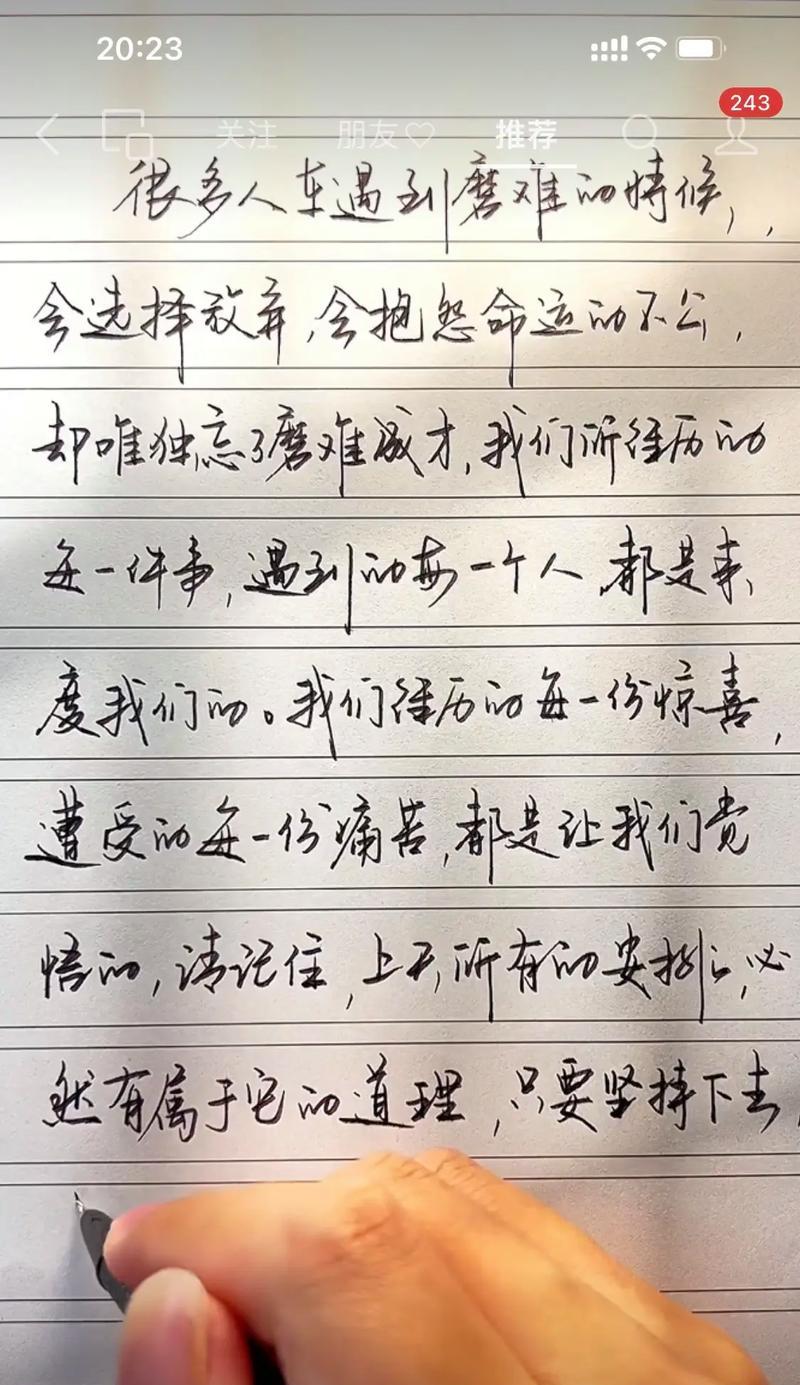 20:23
243
关注 朋友♡ 推荐
很多人在遇到磨难的时候，，
会选择放弃，会抱怨命运的不公，
却唯独忘了磨难成才，我们所经历的
每一件事，遇到的每一个人，都是来
度我们的。我们经历的每一份惊喜，
遭受的每一份痛苦，都是让我们觉
悟的，请记住，上天所有的安排，必
然有属于它的道理，只要坚持下去，